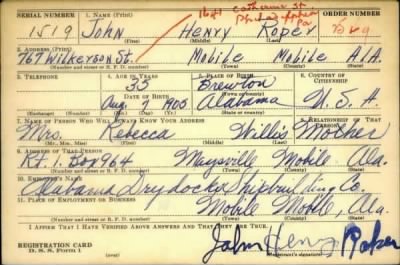 SERIAL NUMBER 1. NAME (Print) 1641 Catherine St. ORDER NUMBER
1519 John Henry Roper
(First) (Middle) (Last)
2. ADDRESS (Print)
767 Wilkerson St. Mobile Mobile Ala.
(Number and street or R. F. D. number) (Town) (County) (State)
3. TELEPHONE 4. AGE IN YEARS 5. PLACE OF BIRTH 6. COUNTRY OF CITIZENSHIP
35 Brewton
DATE OF BIRTH (Town or county)
Aug 7 1905 Alabama U. S. A.
(Exchange) (No.) (Mo.) (Day) (Yr.) (State or country)
7. NAME OF PERSON WHO WILL ALWAYS KNOW YOUR ADDRESS 8. RELATIONSHIP OF THAT PERSON
Mrs. Rebecca Willis Mother
(Mr., Mrs., Miss) (First) (Middle) (Last)
9. ADDRESS OF THAT PERSON
Rt. 1. Box 964 Maysville Mobile Ala.
(Number and street or R. F. D. number) (Town) (County) (State)
10. EMPLOYER'S NAME
Alabama Drydock & Shipbuilding Co.
11. PLACE OF EMPLOYMENT OR BUSINESS
Mobile Mobile, Ala.
(Number and street or R. F. D. number) (Town) (County) (State)
I AFFIRM THAT I HAVE VERIFIED ABOVE ANSWERS AND THAT THEY ARE TRUE.
REGISTRATION CARD
D. S. S. Form 1 John Henry Roper